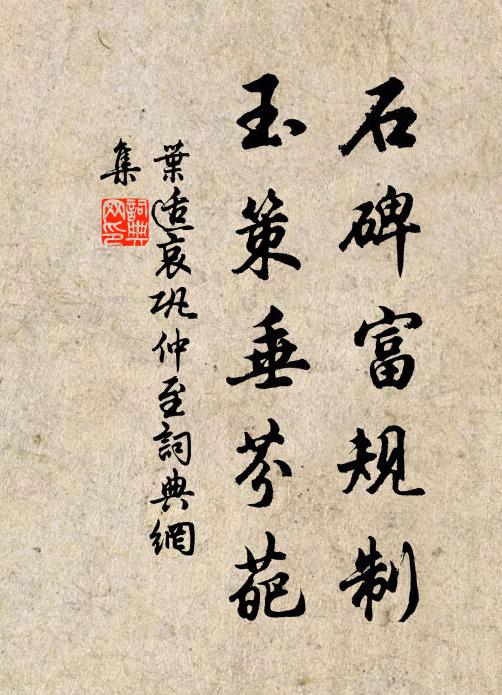 石碑富規制
玉策垂芬葩
葉适哀巩仲至詞典網
集
詞典
网印